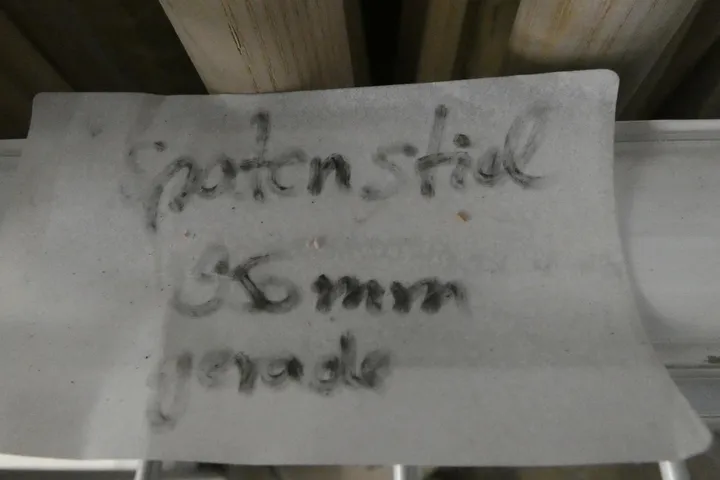 Spatenstiel
36mm
gerade